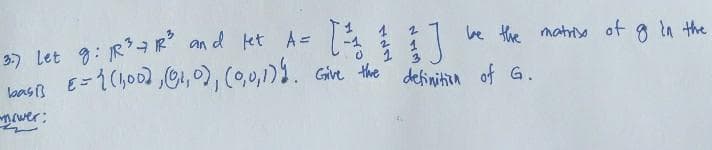 3.) Let g: ℝ³→ℝ³ and let A= [1 1 2; -1 2 1; 0 1 3] be the matrix of g in the
basis E={(1,00),(0,1,0),(0,0,1)}. Give the definition of G.
Answer: